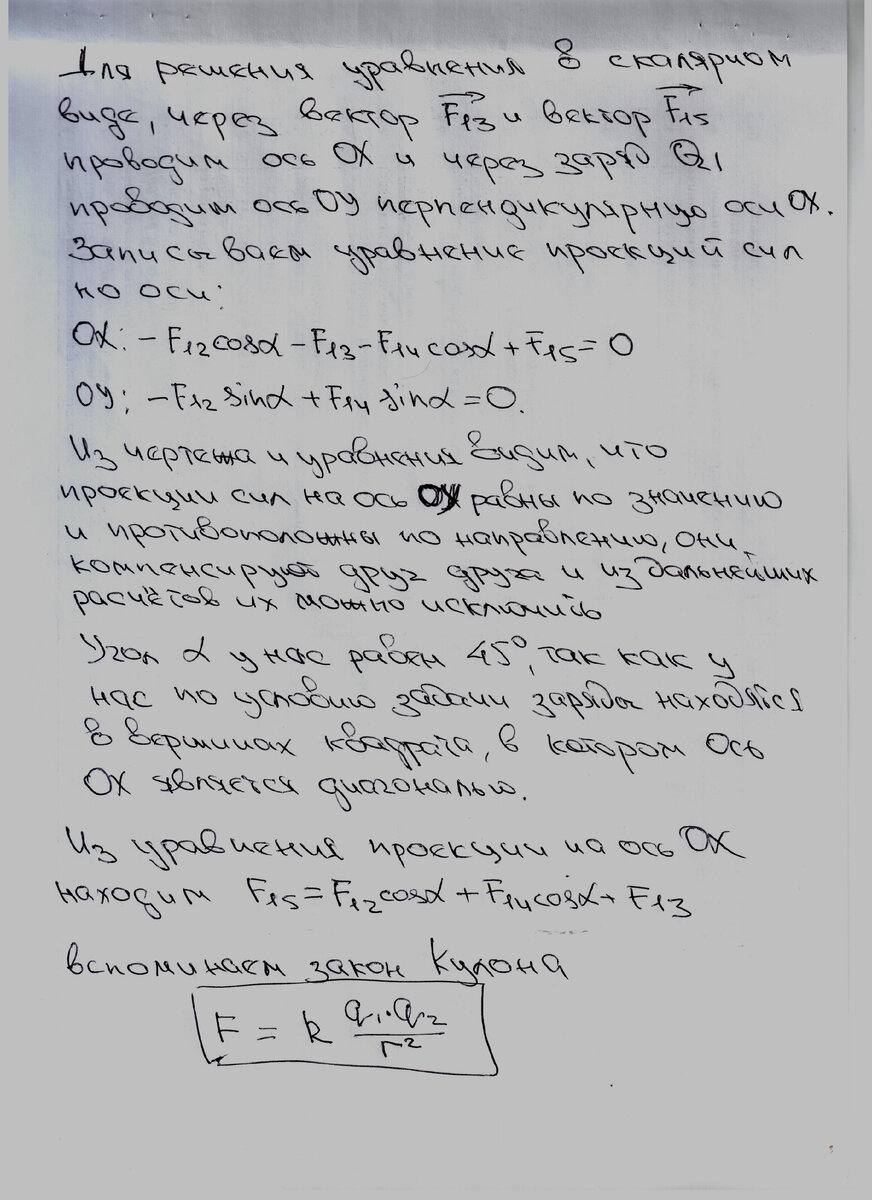 Для решения уравнения в скалярном
виде, через вектор F₁₃ и вектор F₁₅
проводим ось OX и через заряд Q₁
проводим ось OY перпендикулярную оси OX.
Записываем уравнение проекций сил
по оси:
OX: – F₁₂cosα – F₁₃ – F₁₄cosα + F₁₅ = 0
OY: – F₁₂ sinα + F₁₄ sinα = 0.
Из чертежа и уравнения видим, что
проекции сил на ось OY равны по значению
и противоположны по направлению, они
компенсируют друг друга и из дальнейших
расчётов их можно исключить
Угол α у нас равен 45°, так как у
нас по условию задачи заряды находятся
в вершинах квадрата, в котором Ось
OX является диагональю.
Из уравнения проекции на ось OX
находим F₁₅ = F₁₂cosα + F₁₄cosα + F₁₃
вспоминаем закон Кулона
F = k q₁·q₂ / r²